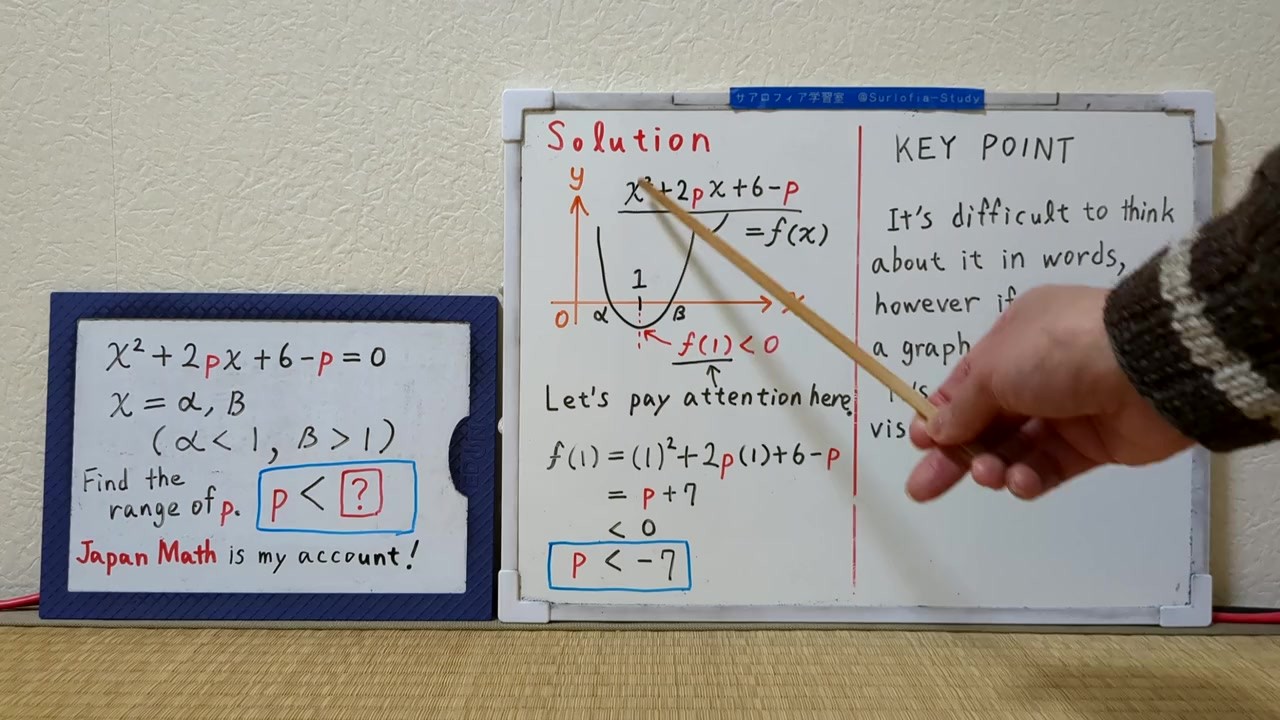 x² + 2px + 6 - p = 0
x = α, β
(α < 1, β > 1)
Find the
range of p.
p < ?
Japan Math is my account!
サアロフィア学習室 @Surlofia-Study
Solution
y
x² + 2px + 6 - p
= f(x)
1
0 α β x
f(1) < 0
Let's pay attention here.
f(1) = (1)² + 2p(1) + 6 - p
= p + 7
< 0
p < -7
KEY POINT
It's difficult to think
about it in words,
however if
a graph
vis